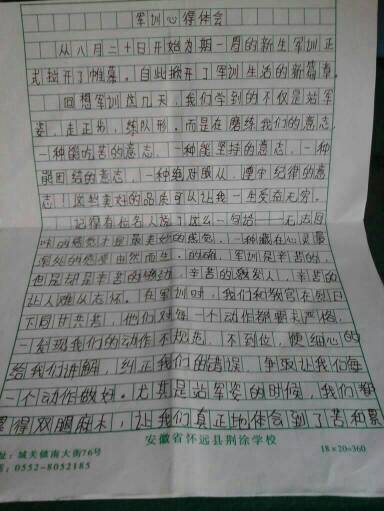 军训心得体会
从八月二十日开始为期一周的新生军训正
式拉开了帷幕。自此掀开了军训生活的新篇章。
回想军训这几天，我们学到的不仅是站军
姿，走正步，练队形。而是在磨练我们的意志，
一种能吃苦的意志，一种能坚持的意志，一种
能团结的意志，一种绝对服从，遵守纪律的意
志！这些美好的品质可以让我一生受益无穷。
记得有位名人说了这么一句话——
的感觉才是最美妙的感觉，一种藏在心灵最
深处的感受由然而生。的确，军训是辛苦的，
但是却是辛苦的
让人难以忘怀。在军训时，我们和教官在烈日
下同甘共苦，他们对每一个动作都要求严格，
一发现我们的动作不规范，不到位，便细心的
给我们讲解，纠正我们的错误，争取让我们每
一个动作做好。尤其是站军姿的时候，我们都
累得双腿麻木，让我们真正地体会到了苦和累
安徽省怀远县荆涂学校
18×20=360
址：城关镇南大街76号
：0552-8052185